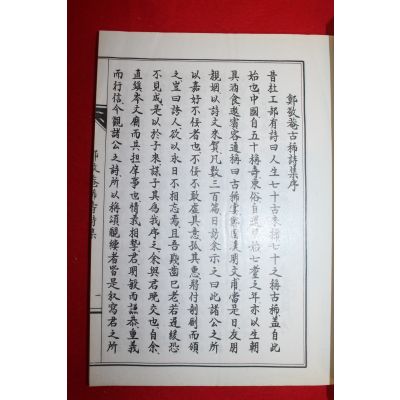 鄭敬菴古稀詩集序
昔杜工部有詩曰人生七十古來稀七十之稱古稀盖自此
始也中國自五十稱壽東俗自還甲始七耋之年亦以生朝
具酒食邀賓客稱曰古稀宴鄭友漢明文甫當是日友朋
親姻以詩文來賀凡數三百篇日訪余示之曰此諸公之所
以嘉好不佞者也不佞不敢虛其意孤其惠將付剞劂而頒
之豈曰誇人欲以永日不相忘焉且吾髮齒已老若遲緩恐
不見成是以於子來謀子其爲我序之余與君晚交也自余
直鎭岑文廟而其担席事也情義相孚君明敏而謙恭重義
而行信今觀諸公之詩所以稱頌覼縷者皆是叙寫君之所